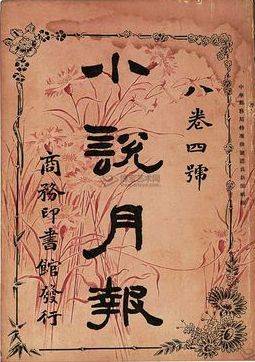 八卷四號
小說月報
商務印書館發行